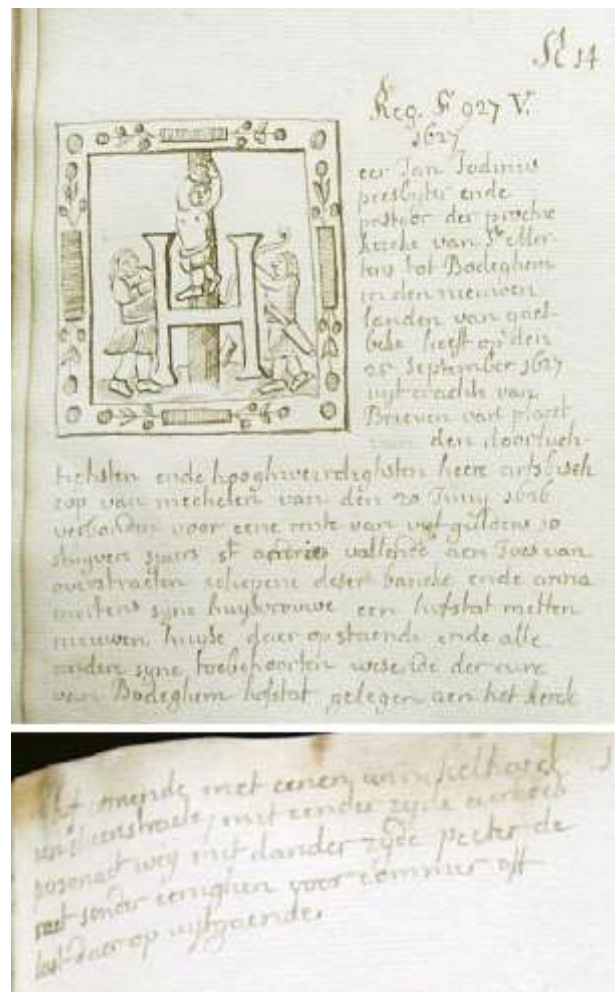 St 14
Reg. F 927 V.
1627
H
eer Jan Judinus
presbyter ende
pastoor der prochie
kercke van Ste Mer-
tens tot Bodeghem
in den nieuwen
landen van gaes-
beke heeft op den
05 september 1627
uyt crachte van
Brieven van placet
den doorluch-
tichsten ende hooghweirdighsten heere artsbissch
op van mechelen van den 20 Juny 1626
verbonden voor eene rente van vyf guldens 10
stuyvers tsjaers st andries vallende aen Joos van
overstraeten schepene deser bancke ende anna
mertens syne huysvrouwe een hofstat metten
nieuwen huyse daer op staende ende alle
anderen syne toebehoorten wesende der cure
van Bodeghem hofstat gelegen aen het kerck
hof comende met eenen
steenstraete, met eender zyde
weg met dander zyde peeter de
sonder eenighen voor commer oft
last daer op uytgaende.